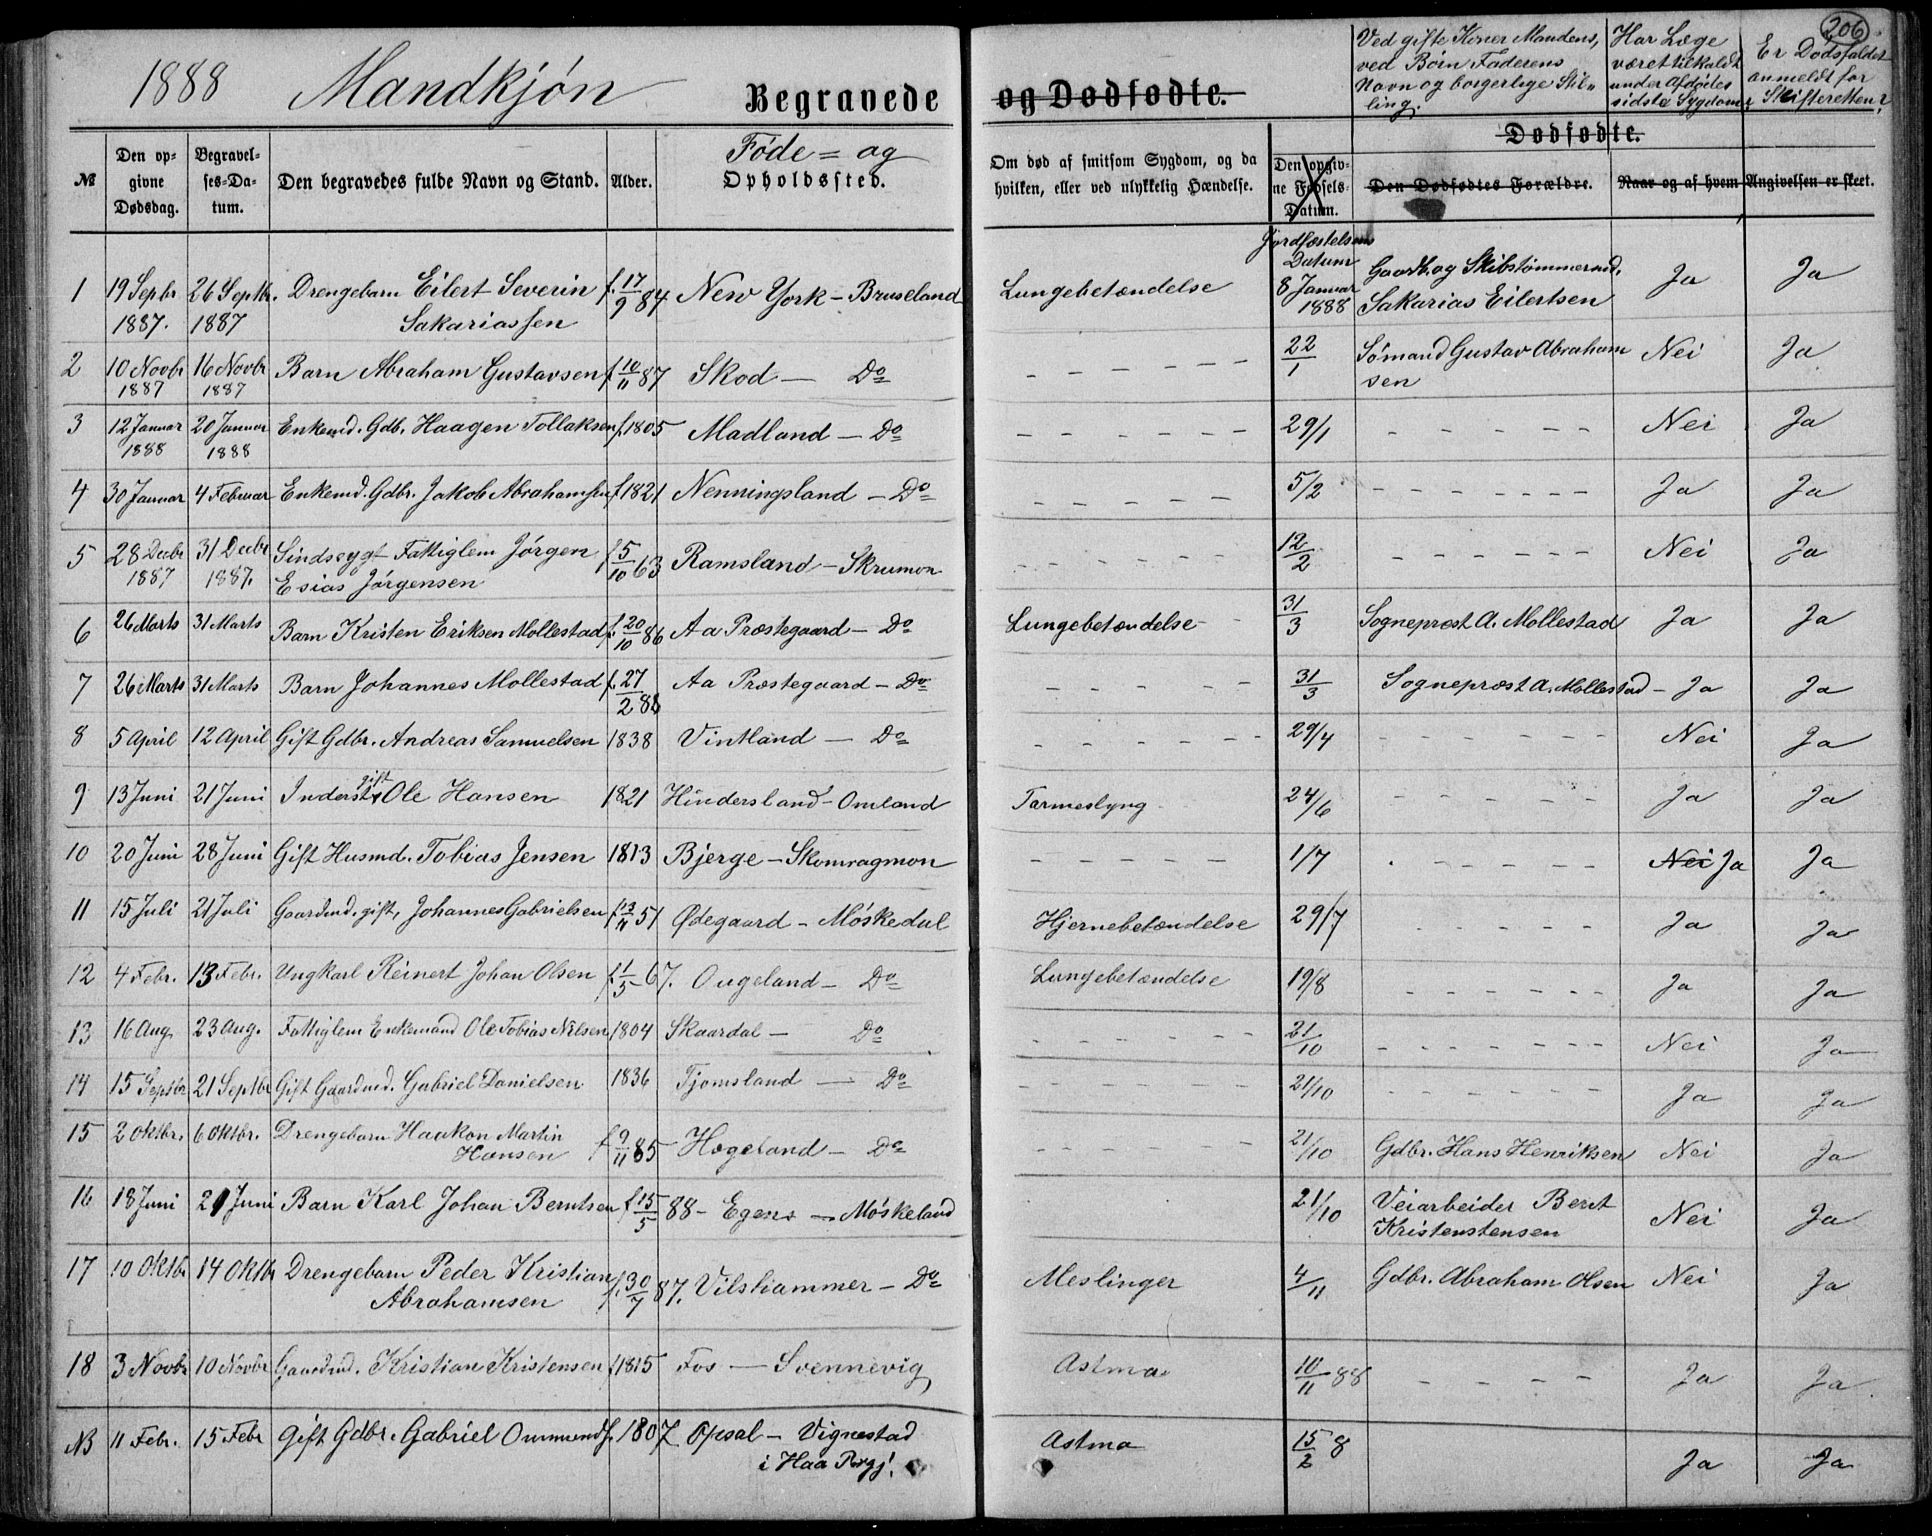 206
1888 Mandkjøn Begravede og Dødfødte.
Ved gifte Koner Mandens,
ved Børn Faderens
Navn og borgerlige Stil-
ling.
Har Læge
været tilkaldt
under Afdødes
sidste Sygdom?
Er Dødsfaldet
anmeldt for
Skifteretten?
Dødfødte.
№
Den op-
givne
Dødsdag.
Begravel-
ses-Da-
tum.
Den begravedes fulde Navn og Stand.
Alder.
Føde = og
Opholdssted.
Om død af smitsom Sygdom, og da
hvilken, eller ved ulykkelig Hændelse.
Den opgiv-
ne Fødsels-
Datum.
Den Dødfødtes Forældre.
Naar og af hvem Angivelsen er skeet.
Jordfæstelsens
Datum
1 19 Sepbr 26 Septbr. Drengebarn Eilert Severin f. 17/9 84 New York - Bruseland Lungebetændelse 8 Januar Gaardb. og Skibstømmermd. Ja Ja
1887. 1887 Sakariassen 1888 Sakarias Eilertsen
2 10 Novbr 16 Novbr Barn Abraham Gustavsen f. 10/11 87 Skod — Do - - - - - - 22/1 Sømand Gustav Abraham Nei Ja
1887 1887 sen
3 12 Januar 20 Januar Enkemd. Gdb. Haagen Tollaksen f. 1805 Madland — Do - - - - - - 29/1 - - - - - - Nei Ja
1888 1888
4 30 Januar 4 Februar Enkemd. Gdbr. Jakob Abrahamsen f 1821 Nenningsland - Do - - - - - - 5/2 - - - - - - Ja Ja
5 28 Decbr 31 Decbr Sindssygt Fattiglem Jørgen f 5/10 63 Ramsland - Skrumon - - - - - - 12/2 - - - - - - Nei Ja
1887 1887. Esias Jørgensen
6 26 Marts 31 Marts Barn Kristen Eriksen Mollestad f. 20/10 86 Aa Præstegaard - Do Lungebetændelse - 31/3 Sogneprest A. Mollestad Ja Ja
7 26 Marts 31 Marts Barn Johannes Mollestad f. 27/2 88 Aa Præstegaard - Do - - - - - - 31/3 Sogneprest A. Mollestad - Ja Ja
8 5 April 12 April Gift Gdbr. Andreas Samuelsen 1838 Vintland — Do - - - - - - 29/4 - - - - - - Nei Ja
gift
9 13 Juni 21 Juni Inderst Ole Hansen 1821 Hindersland - Omland Tarmeslyng 24/6 - - - - - Ja Ja
10 20 Juni 28 Juni Gift Husmd. Tobias Jensen 1813 Bjerge - Skomragmon - - - - - 1/7 - - - - - Nei Ja Ja
11 15 Juli 21 Juli Gaardmd. gift, Johannes Gabrielsen f 13/11 51 Ødegaard - Møskedal Hjernebetændelse 29/7 - - - - - Ja Ja
12 4 Febr. 13 Febr. Ungkarl Reinert Johan Olsen f 1/5 67. Ougeland - Do Lungebetændelse 19/8 - - - - - - Ja Ja
13 16 Aug 23 Aug. Fattiglem Enkemand Ole Tobias Nilsen 1804 Skaardal — Do - - - - - - 21/10 - - - - - - Nei Ja
14 15 Septbr. 21 Septbr Gift Gaardmd. Gabriel Danielsen 1836 Tjomsland — Do - - - - - - 21/10 - - - - - - Ja Ja
15 2 Oktbr. 6 Oktbr. Drengebarn Haakon Martin f 9/11 85 Hægeland - Do - - - - - 21/10 Gdbr. Hans Henriksen Nei Ja
Hansen
16 18 Juni 21 Juni Barn Karl Johan Berntsen f 15/5 88 - Egens — Møskeland 21/10 Veiarbeider Bernt Nei Ja
Kristenstensen
17 10 Oktbr 14 Oktbr Drengebarn Peder Kristian f. 30/7 87. Vilshammer - Do Meslinger 4/11 Gdbr. Abraham Olsen Nei Ja
Abrahamsen
18 3 Novbr 10 Novbr Gaardmd. Kristian Kristensen f 1815 Fos — Svennevig Astma 10/11 88 - - - - - Ja Ja
NB 11 Febr. 15 Febr Gift Gdbr. Gabriel Ommunds. 1807 Opsal - Vignestad Astma 15/2 8 Ja Ja
i Haa Prgj.